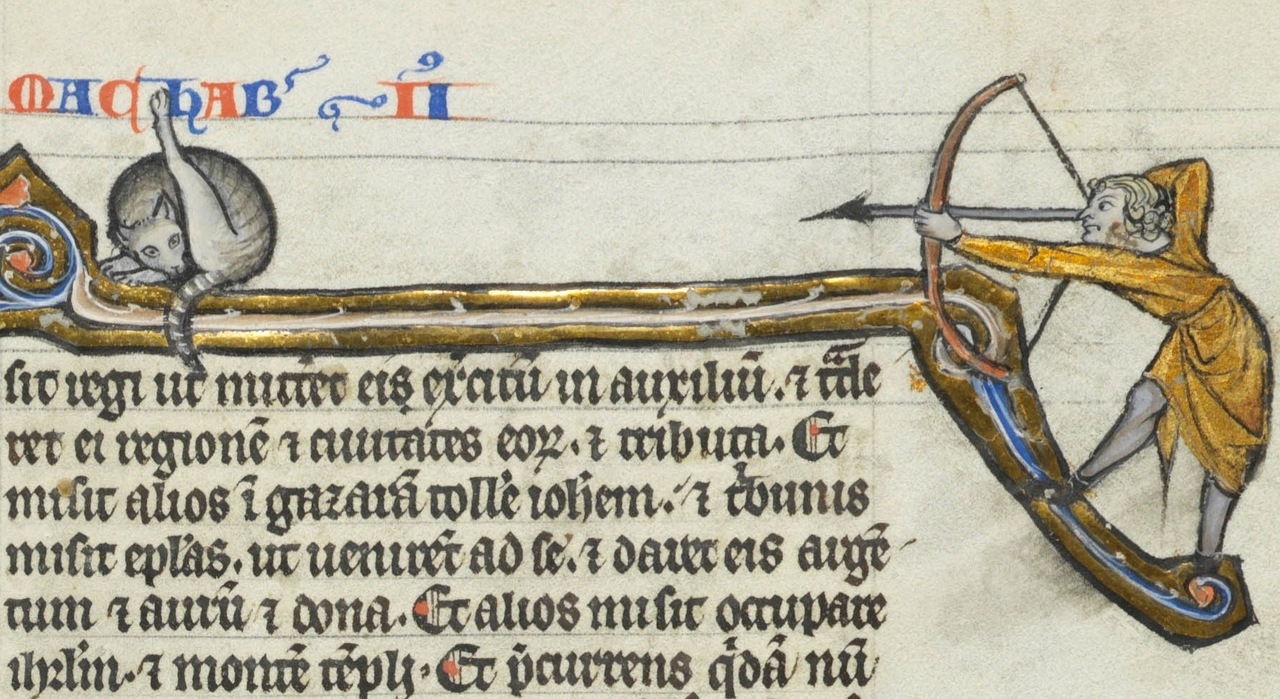 MACHAB' II
sit regi ut mitt̄et eis ex̄citū in auxiliū. ⁊ t̄de
ret ei regionē ⁊ ciuitates eoꝝ. ⁊ tributa. Et
misit alios ī gazarā toll̄e ioh̄em. ⁊ t̓bunis
misit ep̄las. ut ueniret ad se. ⁊ daret eis argē
tum ⁊ aurū ⁊ dona. Et alios misit occupare
ihrl̄m. ⁊ montē tēpli. Et p̄currens q̓dā nū